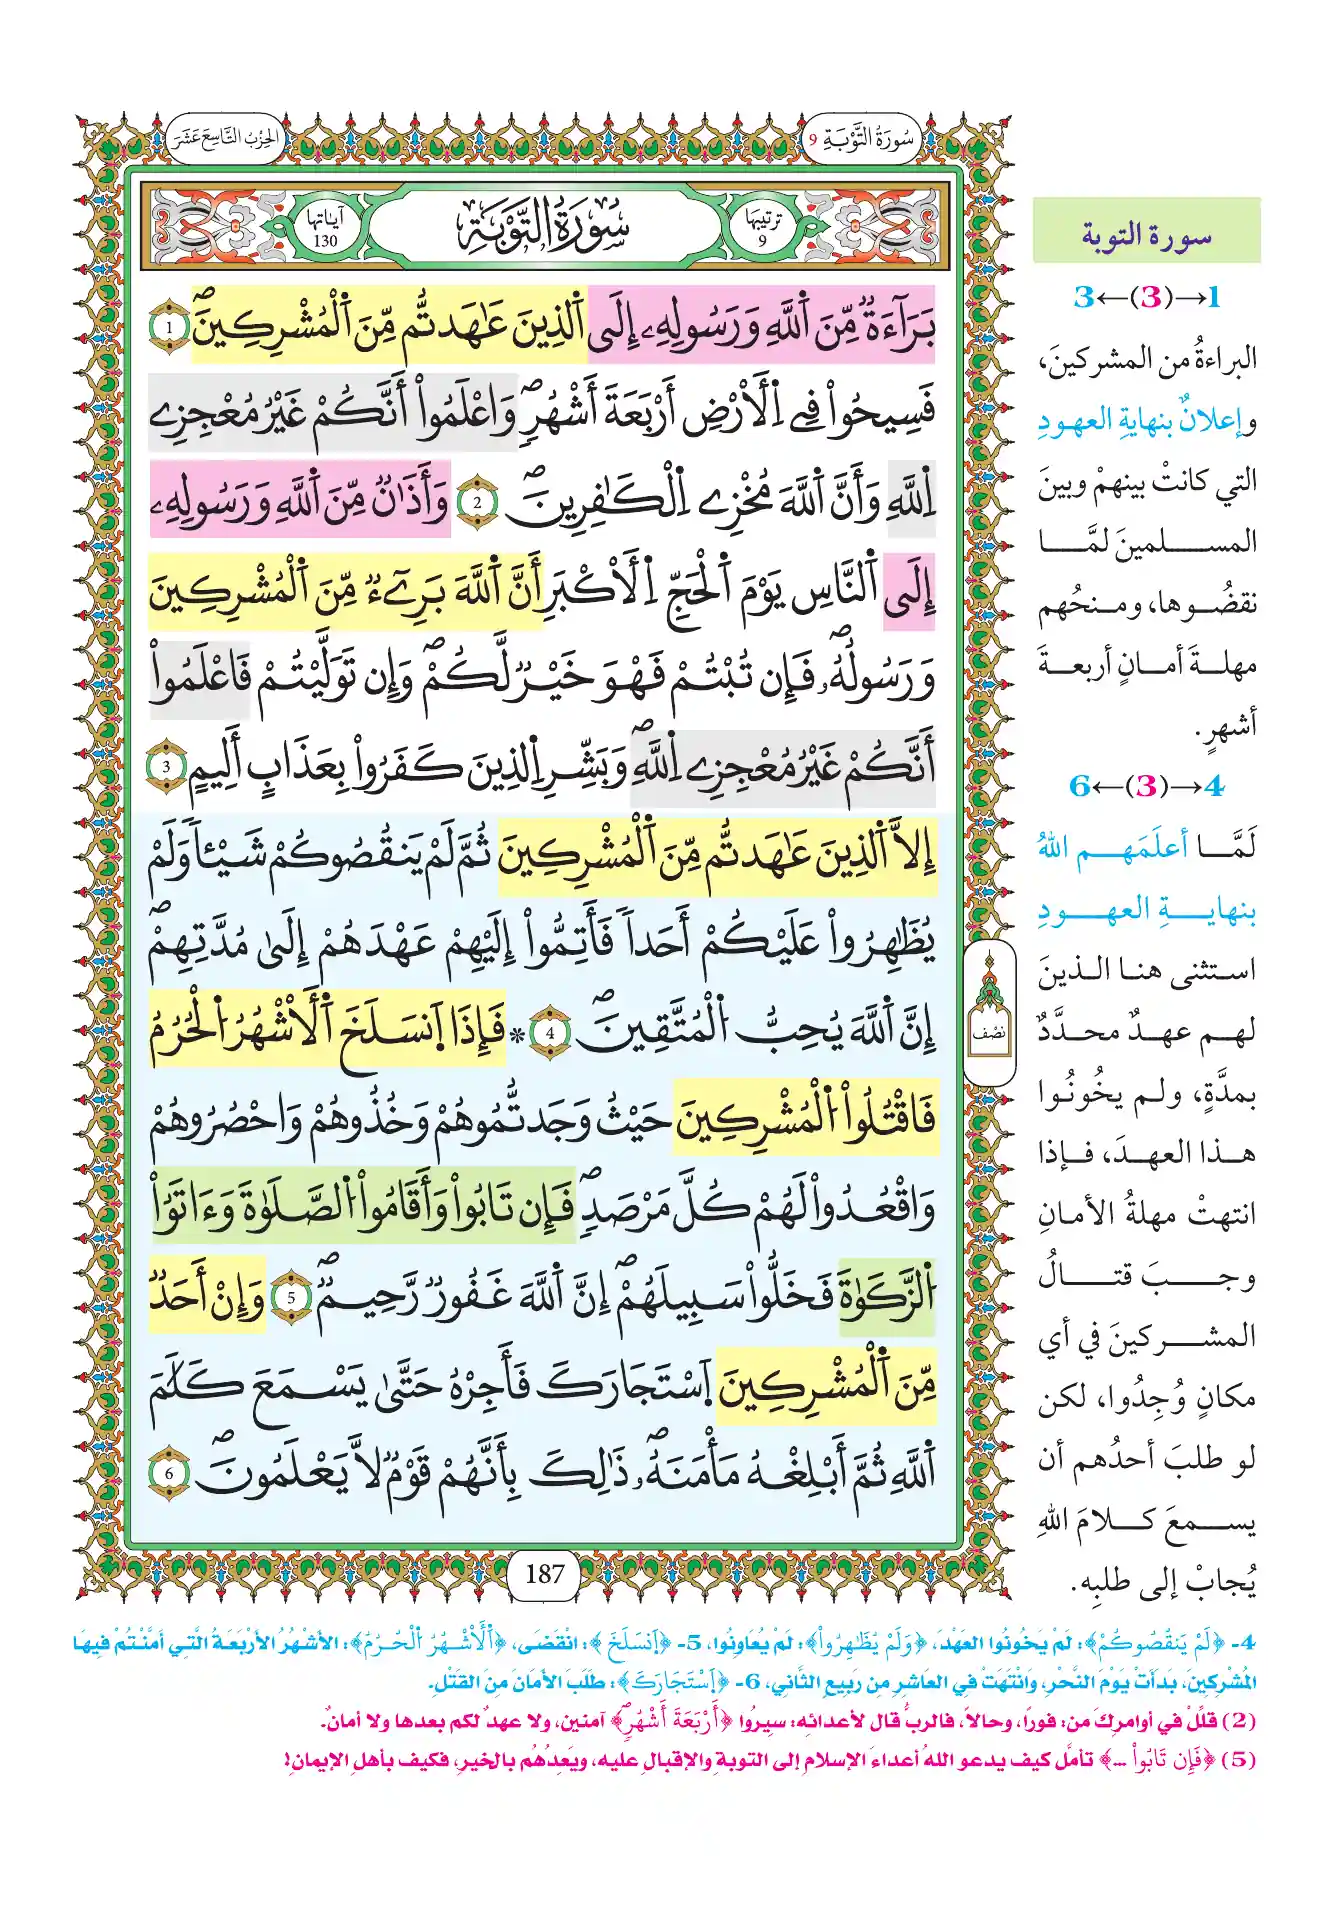 سُورَةُ التَّوْبَةِ 9
الحِزْبُ التَّاسِعَ عَشَرَ
ترتيبها 9
سُورَةُ التَّوْبَةِ
آياتها 130
بَرَآءَةٌ مِّنَ اَ۬للَّهِ وَرَسُولِهِۦٓ إِلَى اَ۬لذِينَ عَٰهَدتُّم مِّنَ اَ۬لْمُشْرِكِينَۖ 1
فَسِيحُواْ فِے اِ۬لَارْضِ أَرْبَعَةَ أَشْهُرٖۖ وَاعْلَمُوٓاْ أَنَّكُمْ غَيْرُ مُعْجِزِے
اِ۬للَّهِ وَأَنَّ اَ۬للَّهَ مُخْزِے اِ۬لْكَٰفِرِينَۖ 2 وَأَذَٰنٞ مِّنَ اَ۬للَّهِ وَرَسُولِهِۦٓ
إِلَى اَ۬لنَّاسِ يَوْمَ اَ۬لْحَجِّ اِ۬لَاكْبَرِ أَنَّ اَ۬للَّهَ بَرِےٓءٞ مِّنَ اَ۬لْمُشْرِكِينَ
وَرَسُولُهُۥۖ فَإِن تُبْتُمْ فَهْوَ خَيْرٞ لَّكُمْۖ وَإِن تَوَلَّيْتُمْ فَاعْلَمُوٓاْ
أَنَّكُمْ غَيْرُ مُعْجِزِے اِ۬للَّهِۖ وَبَشِّرِ اِ۬لذِينَ كَفَرُواْ بِعَذَابٍ أَلِيمٍ 3
اِلَّا اَ۬لذِينَ عَٰهَدتُّم مِّنَ اَ۬لْمُشْرِكِينَ ثُمَّ لَمْ يَنقُصُوكُمْ شَيْـٔاٗ وَلَمْ
يُظَٰهِرُواْ عَلَيْكُمْ أَحَداٗ فَأَتِمُّوٓاْ إِلَيْهِمْ عَهْدَهُمْ إِلَىٰ مُدَّتِهِمْۖ
إِنَّ اَ۬للَّهَ يُحِبُّ اُ۬لْمُتَّقِينَۖ 4 * فَإِذَا اَ۪نسَلَخَ اَ۬لَاشْهُرُ اُ۬لْحُرُمُ
فَاقْتُلُواْ اُ۬لْمُشْرِكِينَ حَيْثُ وَجَدتُّمُوهُمْ وَخُذُوهُمْ وَاحْصُرُوهُمْ
وَاقْعُدُواْ لَهُمْ كُلَّ مَرْصَدٖۖ فَإِن تَابُواْ وَأَقَامُواْ اُ۬لصَّلَوٰةَ وَءَاتَوُاْ
اُ۬لزَّكَوٰةَ فَخَلُّواْ سَبِيلَهُمْۖ إِنَّ اَ۬للَّهَ غَفُورٞ رَّحِيمٞۖ 5 وَإِنْ أَحَدٞ
مِّنَ اَ۬لْمُشْرِكِينَ اَ۪سْتَجَارَكَ فَأَجِرْهُ حَتَّىٰ يَسْمَعَ كَلَٰمَ
اَ۬للَّهِ ثُمَّ أَبْلِغْهُ مَأْمَنَهُۥۖ ذَٰلِكَ بِأَنَّهُمْ قَوْمٞ لَّا يَعْلَمُونَۖ 6
نصف
187
سورة التوبة
1→(3)←3
البراءةُ من المشركينَ،
وإعلانٌ بنهايةِ العهودِ
التي كانتْ بينهمْ وبينَ
المسلمينَ لمَّا
نقضُوها، ومنحُهم
مهلةَ أمانٍ أربعةَ
أشهرٍ.
4→(3)←6
لَمَّا أعلَمَهم اللهُ
بنهايةِ العهودِ
استثنى هنا الذينَ
لهم عهدٌ محدَّدٌ
بمدَّةٍ، ولم يخُونُوا
هذا العهدَ، فإذا
انتهتْ مهلةُ الأمانِ
وجبَ قتالُ
المشركينَ في أي
مكانٍ وُجِدُوا، لكن
لو طلبَ أحدُهم أن
يسمعَ كلامَ اللهِ
يُجابْ إلى طلبِه.
4- ﴿لَمْ يَنقُصُوكُمْ﴾: لَمْ يَخُونُوا العَهْدَ، ﴿وَلَمْ يُظَٰهِرُواْ﴾: لَمْ يُعَاوِنُوا، 5- ﴿اَ۪نسَلَخَ﴾: انْقَضَى، ﴿اَ۬لَاشْهُرُ اُ۬لْحُرُمُ﴾: الأشْهُرُ الأرْبَعَةُ الَّتِي أَمَّنْتُمْ فِيهَا
المُشْرِكِينَ، بَدَأَتْ يَوْمَ النَّحْرِ، وَانْتَهَتْ فِي العَاشِرِ مِن رَبِيعٍ الثَّانِي، 6- ﴿اَ۪سْتَجَارَكَ﴾: طَلَبَ الأمَانَ مِنَ القَتْلِ.
(2) قلِّلْ في أوامرِكَ من: فورًا، وحالاً، فالربُّ قال لأعدائه: سِيرُوا ﴿أَرْبَعَةَ أَشْهُرٖ﴾ آمنين، ولا عهدٌ لكم بعدها ولا أمانٌ.
(5) ﴿فَإِن تَابُواْ ...﴾ تأمَّل كيف يدعو اللهُ أعداءَ الإسلامِ إلى التوبةِ والإقبالِ عليه، ويَعِدُهُم بالخيرِ، فكيف بأهلِ الإيمانِ؟!